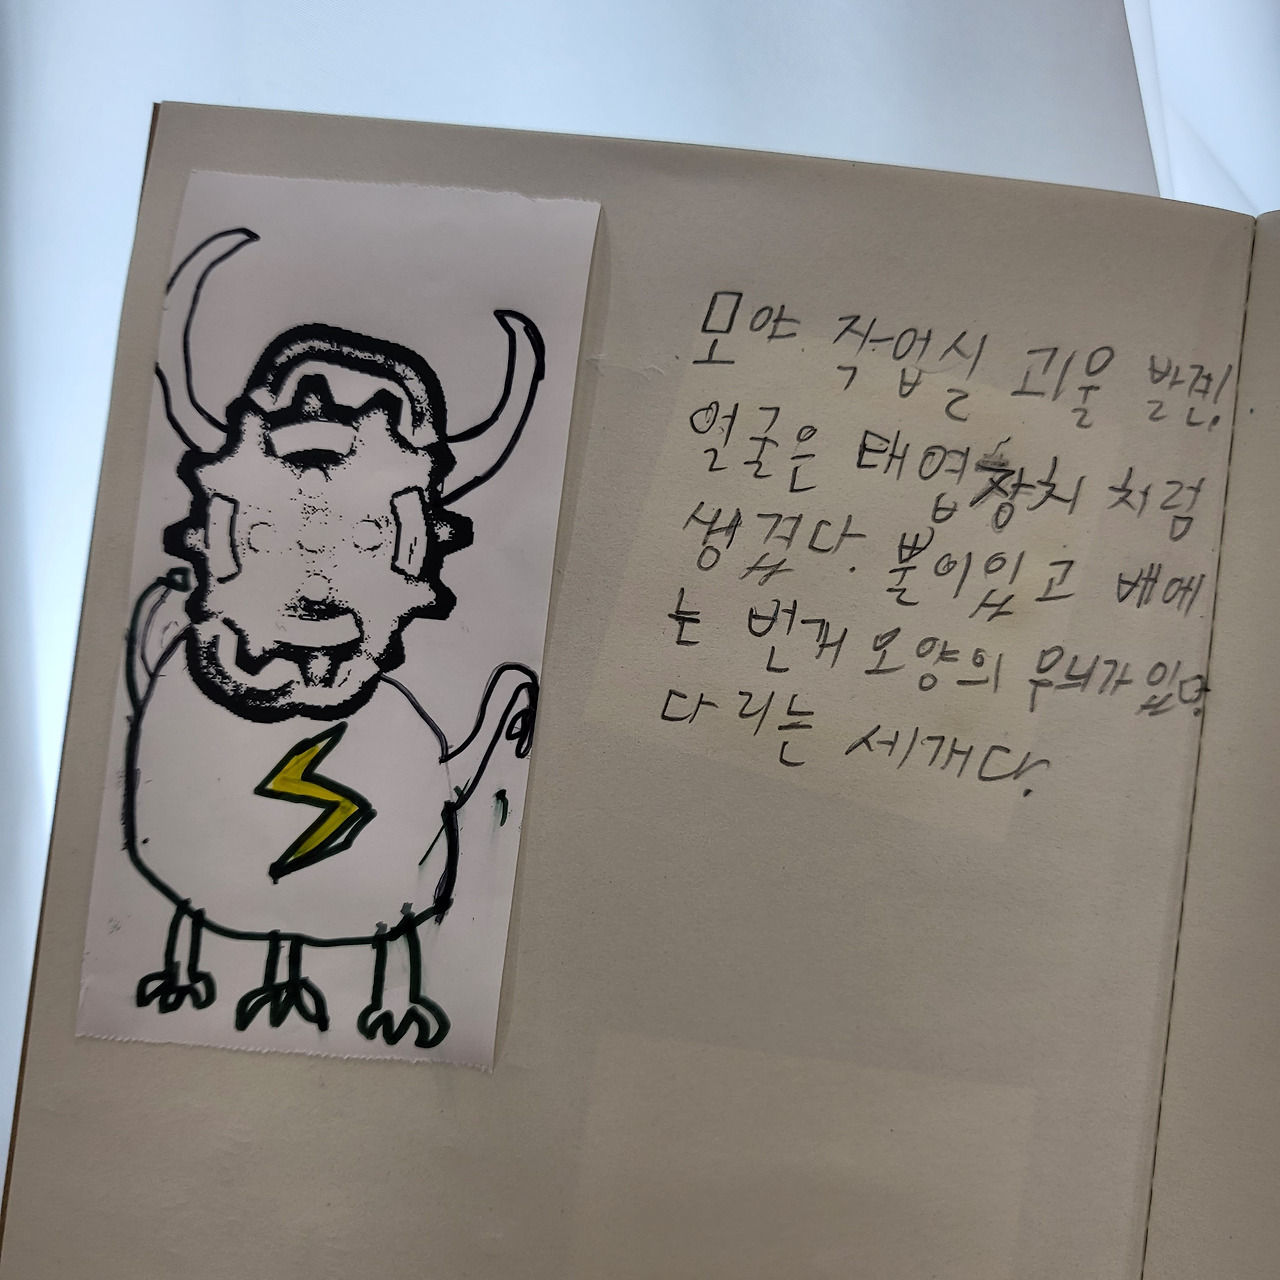 모야 작업실 괴물 발견!
얼굴은 태엽장치 처럼
생겼다. 뿔이있고 배에
는 번개 모양의 무늬가 있다.
다리는 세개다.